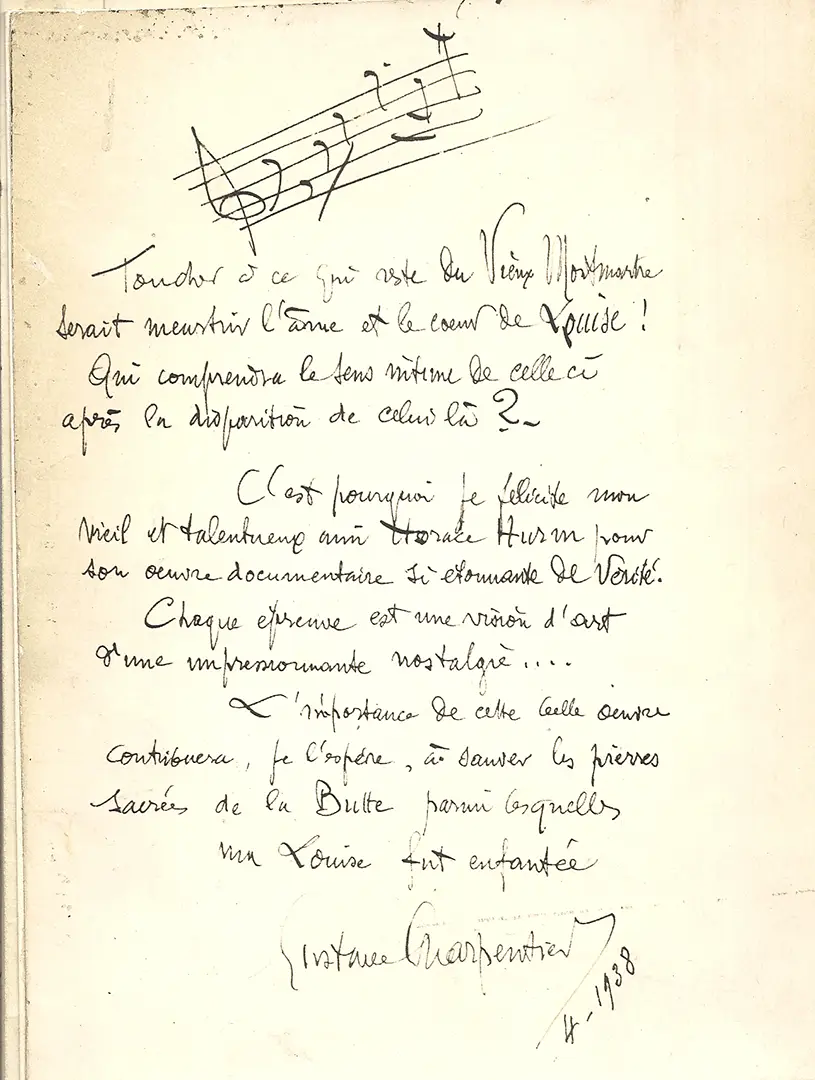 Toucher à ce qui reste du Vieux Montmartre
serait meurtrir l'âme et le coeur de Louise !
Qui comprendra le sens intime de celle ci
après la disparition de celui là ?
C'est pourquoi je félicite mon
vieil et talentueux ami Horace Hurm pour
son oeuvre documentaire si étonnante de Vérité.
Chaque épreuve est une vision d'art
d'une impressionnante nostalgie ....
L'importance de cette belle oeuvre
contribuera, je l'espère, à sauver les pierres
sacrées de la Butte parmi lesquelles
ma Louise fut enfantée
Gustave Charpentier
4-1938